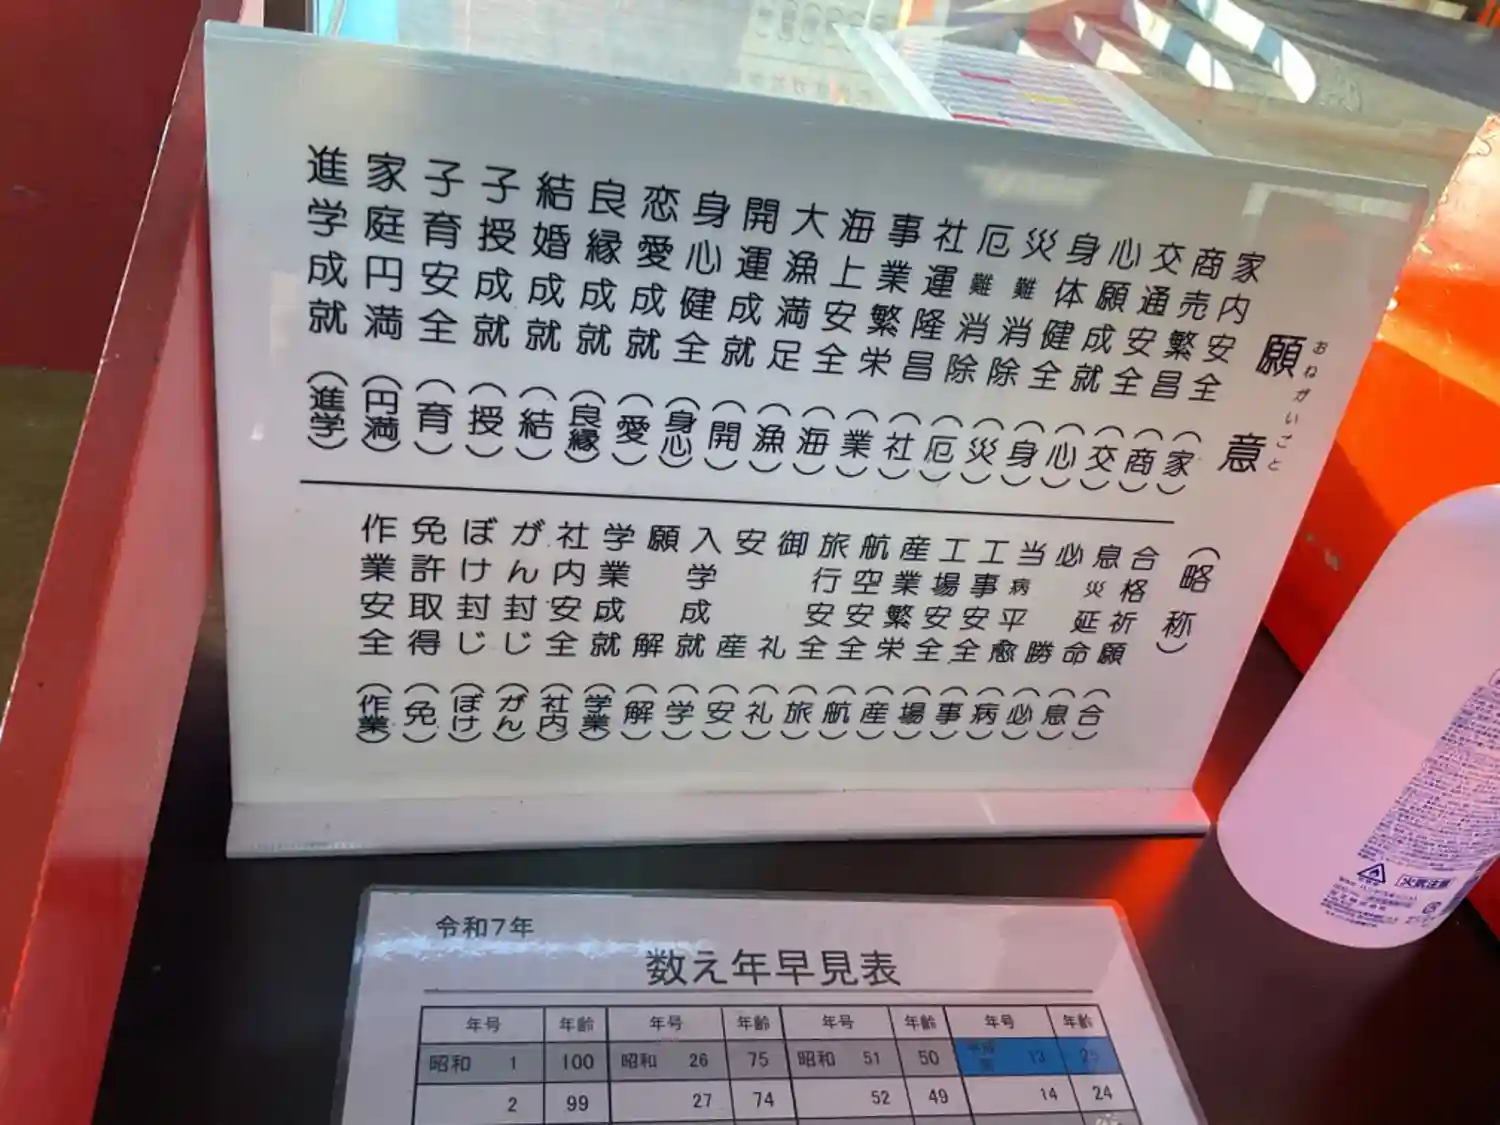 願意
おねがいごと
(略称)
家内安全(家)
商売繁昌(商)
交通安全(交)
心願成就(心)
身体健全(身)
災難消除(災)
厄難消除(厄)
社運隆昌(社)
事業繁栄(業)
海上安全(海)
大漁満足(漁)
開運成就(開)
身心健全(身心)
恋愛成就(愛)
良縁成就(良縁)
結婚成就(結)
子授成就(授)
子育安全(育)
家庭円満(円満)
進学成就(進学)
合格祈願(合)
息災延命(息)
必勝(必)
当病平愈(病)
工事安全(事)
工場安全(場)
産業繁栄(産)
航空安全(航)
旅行安全(旅)
御礼(礼)
安産(安)
入学成就(学)
願解(解)
学業成就(学業)
社内安全(社内)
がん封じ(がん)
ぼけ封じ(ぼけ)
免許取得(免)
作業安全(作業)
令和7年
数え年早見表
年号 年齢 年号 年齢 年号 年齢 年号 年齢
昭和 1 100 昭和 26 75 昭和 51 50 平成 13 25
2 99 27 74 52 49 14 24
火気注意